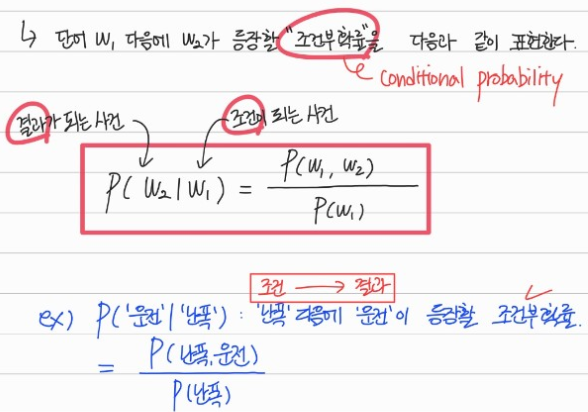 ↳ 단어 W₁ 다음에 W₂가 등장할 "조건부 확률"을 다음과 같이 표현한다.
conditional probability
결과가 되는 사건 조건이 되는 사건
P(W₂|W₁) = P(W₁, W₂) / P(W₁)
조건 → 결과
ex) P('운전'|'난폭') : '난폭' 다음에 '운전'이 등장할 조건부 확률.
= P(난폭, 운전) / P(난폭)